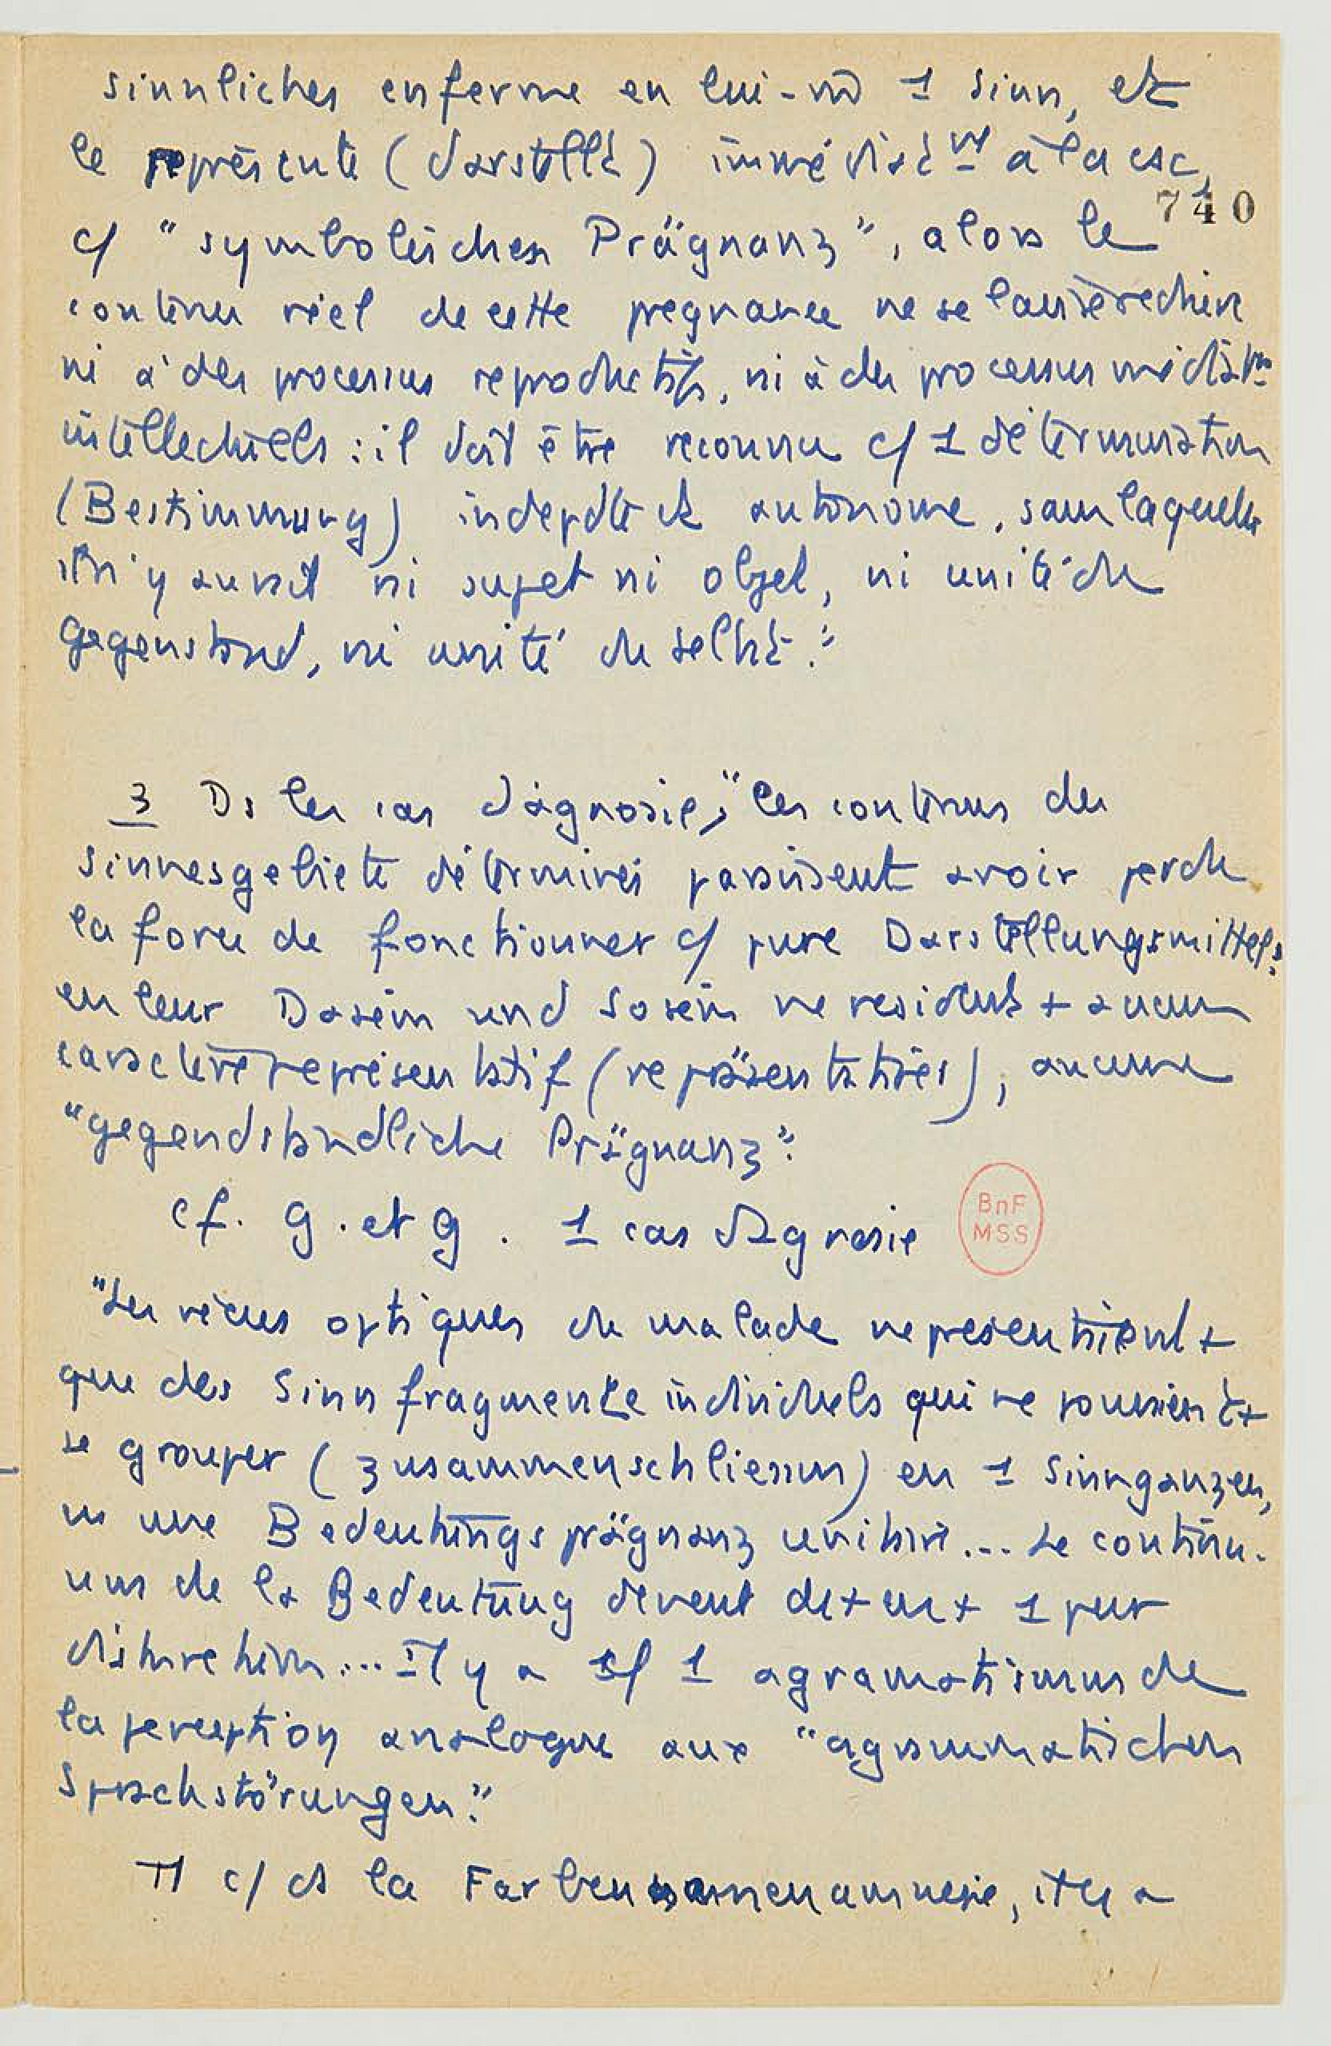 sinnliches enferme en lui-m̄ 1 Sinn, et
le représente (darstellt) immédiatᵐᵗ à la csc,
740
c/ "symbolischen Prägnanz", alors le
contenu réel de cette pregnance ne se laisse réduire
ni à des processus reproductifs, ni à des processus médiatᵐᵗ
intellectuels : il doit être reconnu c/ 1 détermination
(Bestimmung) indepdte et autonome, sans laquelle
il n'y aurait ni sujet ni objet, ni unité du
Gegenstand, ni unité du Selbst."
3 Ds les cas d'agnosie, "les contenus des
Sinnesgebiete déterminés paraissent avoir perdu
la force de fonctionner c/ pure Darstellungsmittel;
en leur Dasein und Sosein ne résident + aucun
caractère représentatif (repräsentatives), aucune
"gegendständliche Prägnanz".
cf. G. et G. 1 cas d'Agnosie
BnF
MSS
"Les vécus optiques du malade ne présentaient +
que des Sinnfragmente individuels qui ne pouvaient +
se grouper (zusammenschliessen) en 1 Sinnganzen,
en une Bedeutungsprägnanz unitaire... Le continu-
um de la Bedeutung devient de + en + 1 pur
... Il y a 1 agramatismus de
la perception analogue aux "agrammatischen
Sprachstörungen".
c/ ds la Farbennamenamnesie, il y a